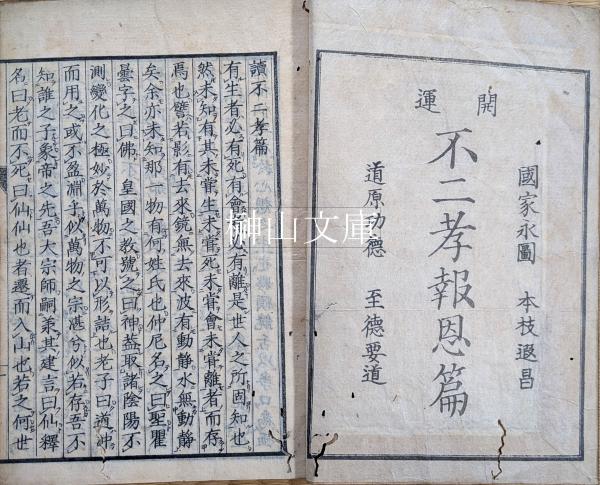 開運
國家永圖 本枝遐昌
不二孝報恩篇
道原功德 至德要道
讀不二孝篇
有生者必有死有會者必有離是世人之所固知也
然未知有其未嘗生未嘗死未嘗會未嘗離者而存
焉也譬若影有去來鏡無去來波有動靜水無動靜
矣余亦未知那一物有何姓氏也仲尼名之曰聖瞿
曇字之曰佛 皇國之教號之曰神蓋取諸陰陽不
測變化之極妙於萬物不可以形詰也老子曰道沖
而用之或不盈淵乎似萬物之宗湛兮似若存吾不
知誰之子象帝之先吾大宗師嗣秉其建言曰仙釋
名曰老而不死曰仙仙也者遷而入山也若之何世
榊山文庫